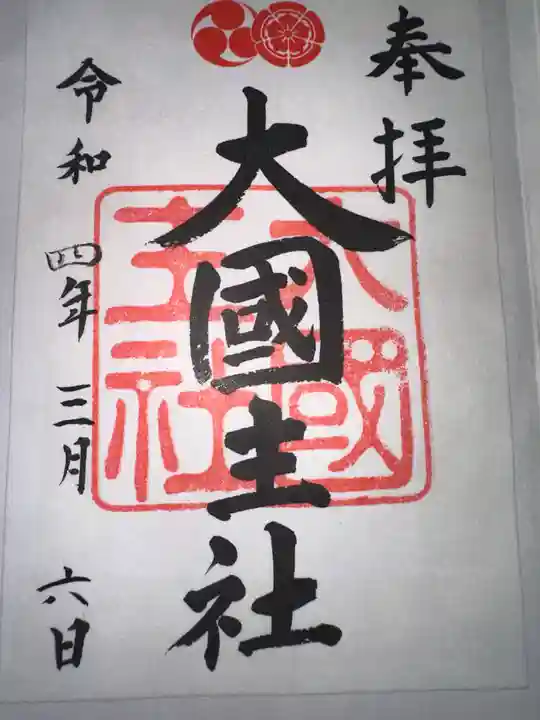 奉拝
大國主社
大國主社
令和四年三月六日